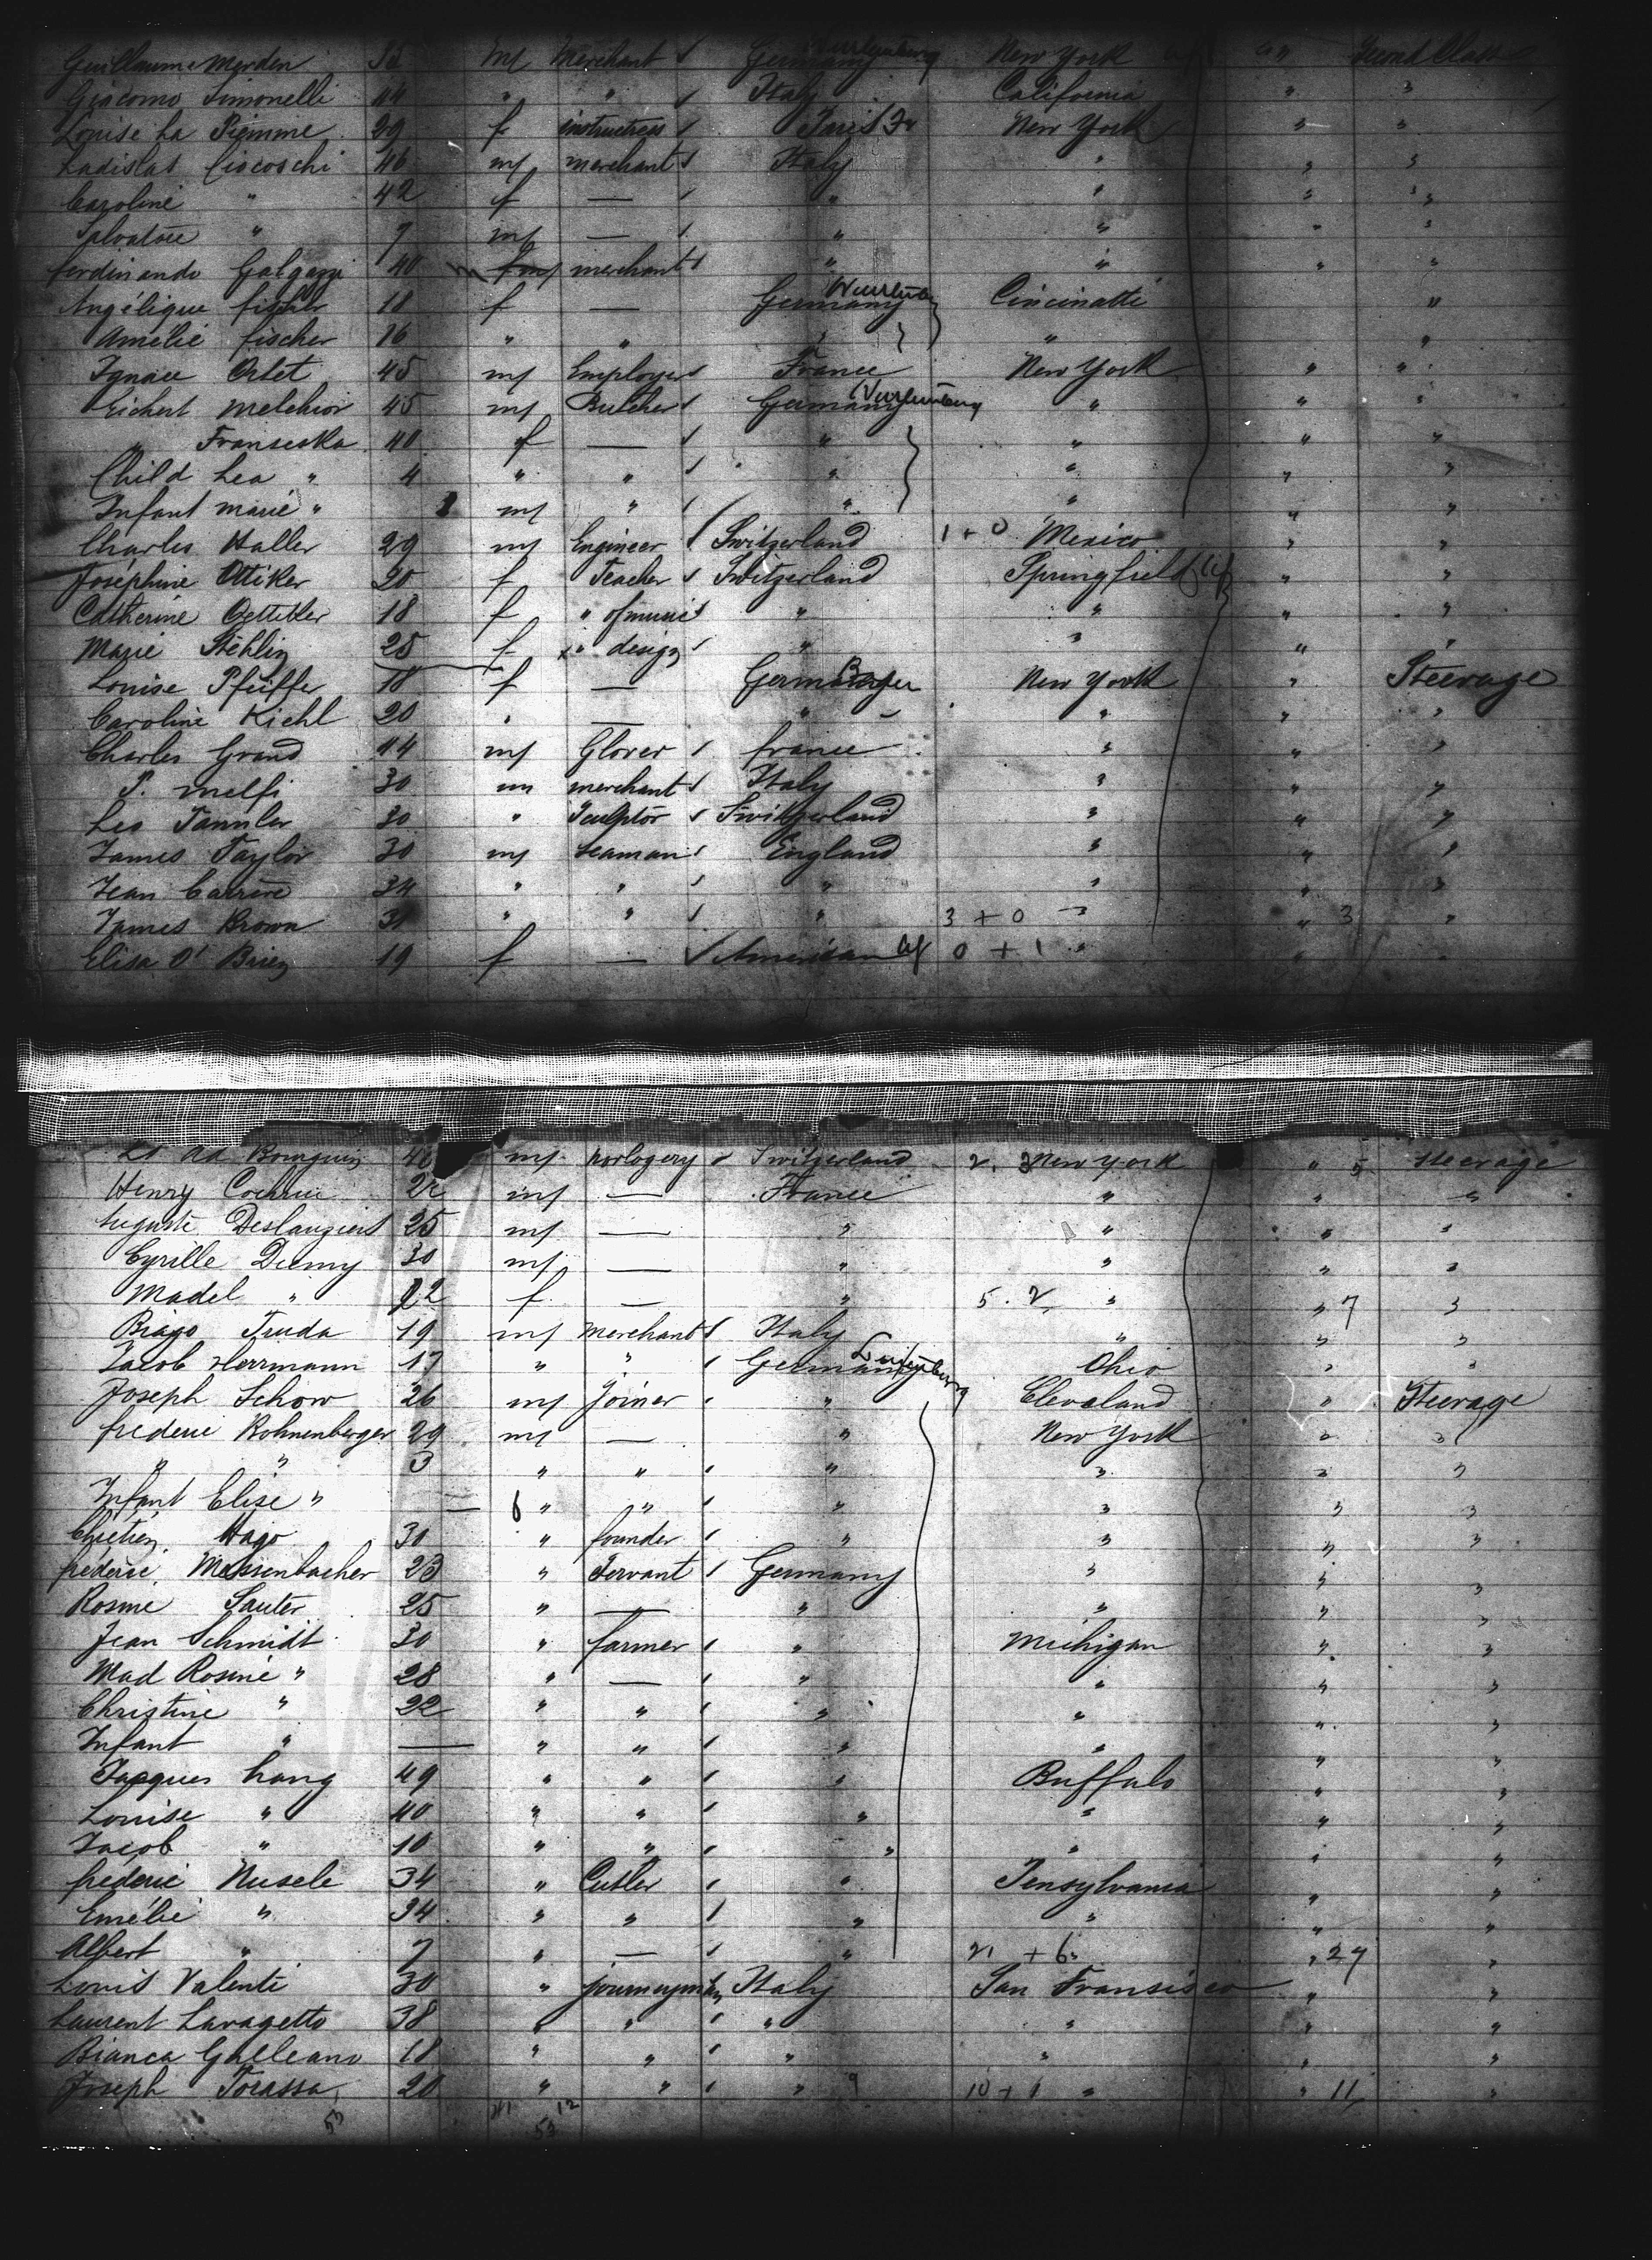 Guillaume Merden 32 m Merchant Germany Wurtemburg New York " Second Class
Giacomo Simonelli 44 " " Italy California " "
Louise La Piemme 29 f instructress Paris Fr New York " "
Ladislas Ciocoschi 46 m merchant Italy " " "
Caroline " 42 f — " " " "
Salvatore " 7 m — " " " "
ferdinando Galgazzi 40 m merchant " " " "
Angélique fischer 18 f — Germany Cincinatti "
Amélié fischer 16 " " " " "
Ignace Orlet 45 m Employer France New York " "
Eichert Melchior 45 m Butcher Germany Wurtemburg " " "
" Franseska 40 f — " " " "
Child Lea " 4 " " " " " "
Infant marie " m " " " " "
Charles Haller 29 m Engineer Switzerland 1 + 0 Mexico " "
Joséphine Ottiker 20 f Teacher Switzerland Springfield " "
Catherine Oettiker 18 f " of music " " " "
Marie Stéhlin 25 f " design " " " "
Louise Pfeiffer 18 f — Germany New York " Steerage
Caroline Kiehl 20 " — " " " "
Charles Grand 44 m Glover france " " "
P. Melfi 30 m merchant Italy " " "
Leo Tannler 30 " Sculptor Switzerland " " "
James Taylor 30 m Seaman England " " "
Jean Carrère 34 " " " " " "
James Brown 31 " " " 3 + 0 " " 3 "
Elisa O' Brien 19 f — American 0 + 1 " " "
Ls Ad Bourquin m horlogery Switzerland 2. New York " 5 Steerage
Henry m — France " " "
Auguste Deslauziers 25 m — " " " "
Cyrille Diemy 30 m — " " " "
Madel " 22 f — " 5. 2. " " 7 "
Biago Tauda 19 m Merchant Italy " " "
Jacob Herrmann 17 " " Germany Ohio " "
Joseph Schow 26 m Joiner " Clevaland " Steerage
fréderic Rohnenberger 29 m — " New York " "
" " 3 " " " " " "
Infant Elise " — f " " " " "
Chrétien Hago 30 " founder " " " "
fréderic Messenbacher 23 " Servant Germany " " "
Rosine Sauter 25 " — " " " "
Jean Schmidt 30 " farmer " Michigan " "
Mad Rosine " 28 " — " " " "
Christine " 22 " " " " " "
Infant " — " " " " " "
Jacques Lang 49 " " " Buffalo " "
Louise " 40 " " " " " "
Jacob " 10 " " " " " "
fréderic Nusele 34 " Cutler " Pensylvania " "
Emélie " 34 " " " " " "
Albert " 7 " — " 21 + 6 " 27 "
Louis Valenti 30 " journeyman Italy San Fransisco " "
Laurent Lavagetto 38 " " " " " "
Bianca Galleano 18 " " " " " "
Joseph Torassa 20 " " " 10 + 1 " " 11 "
53 41 12
53